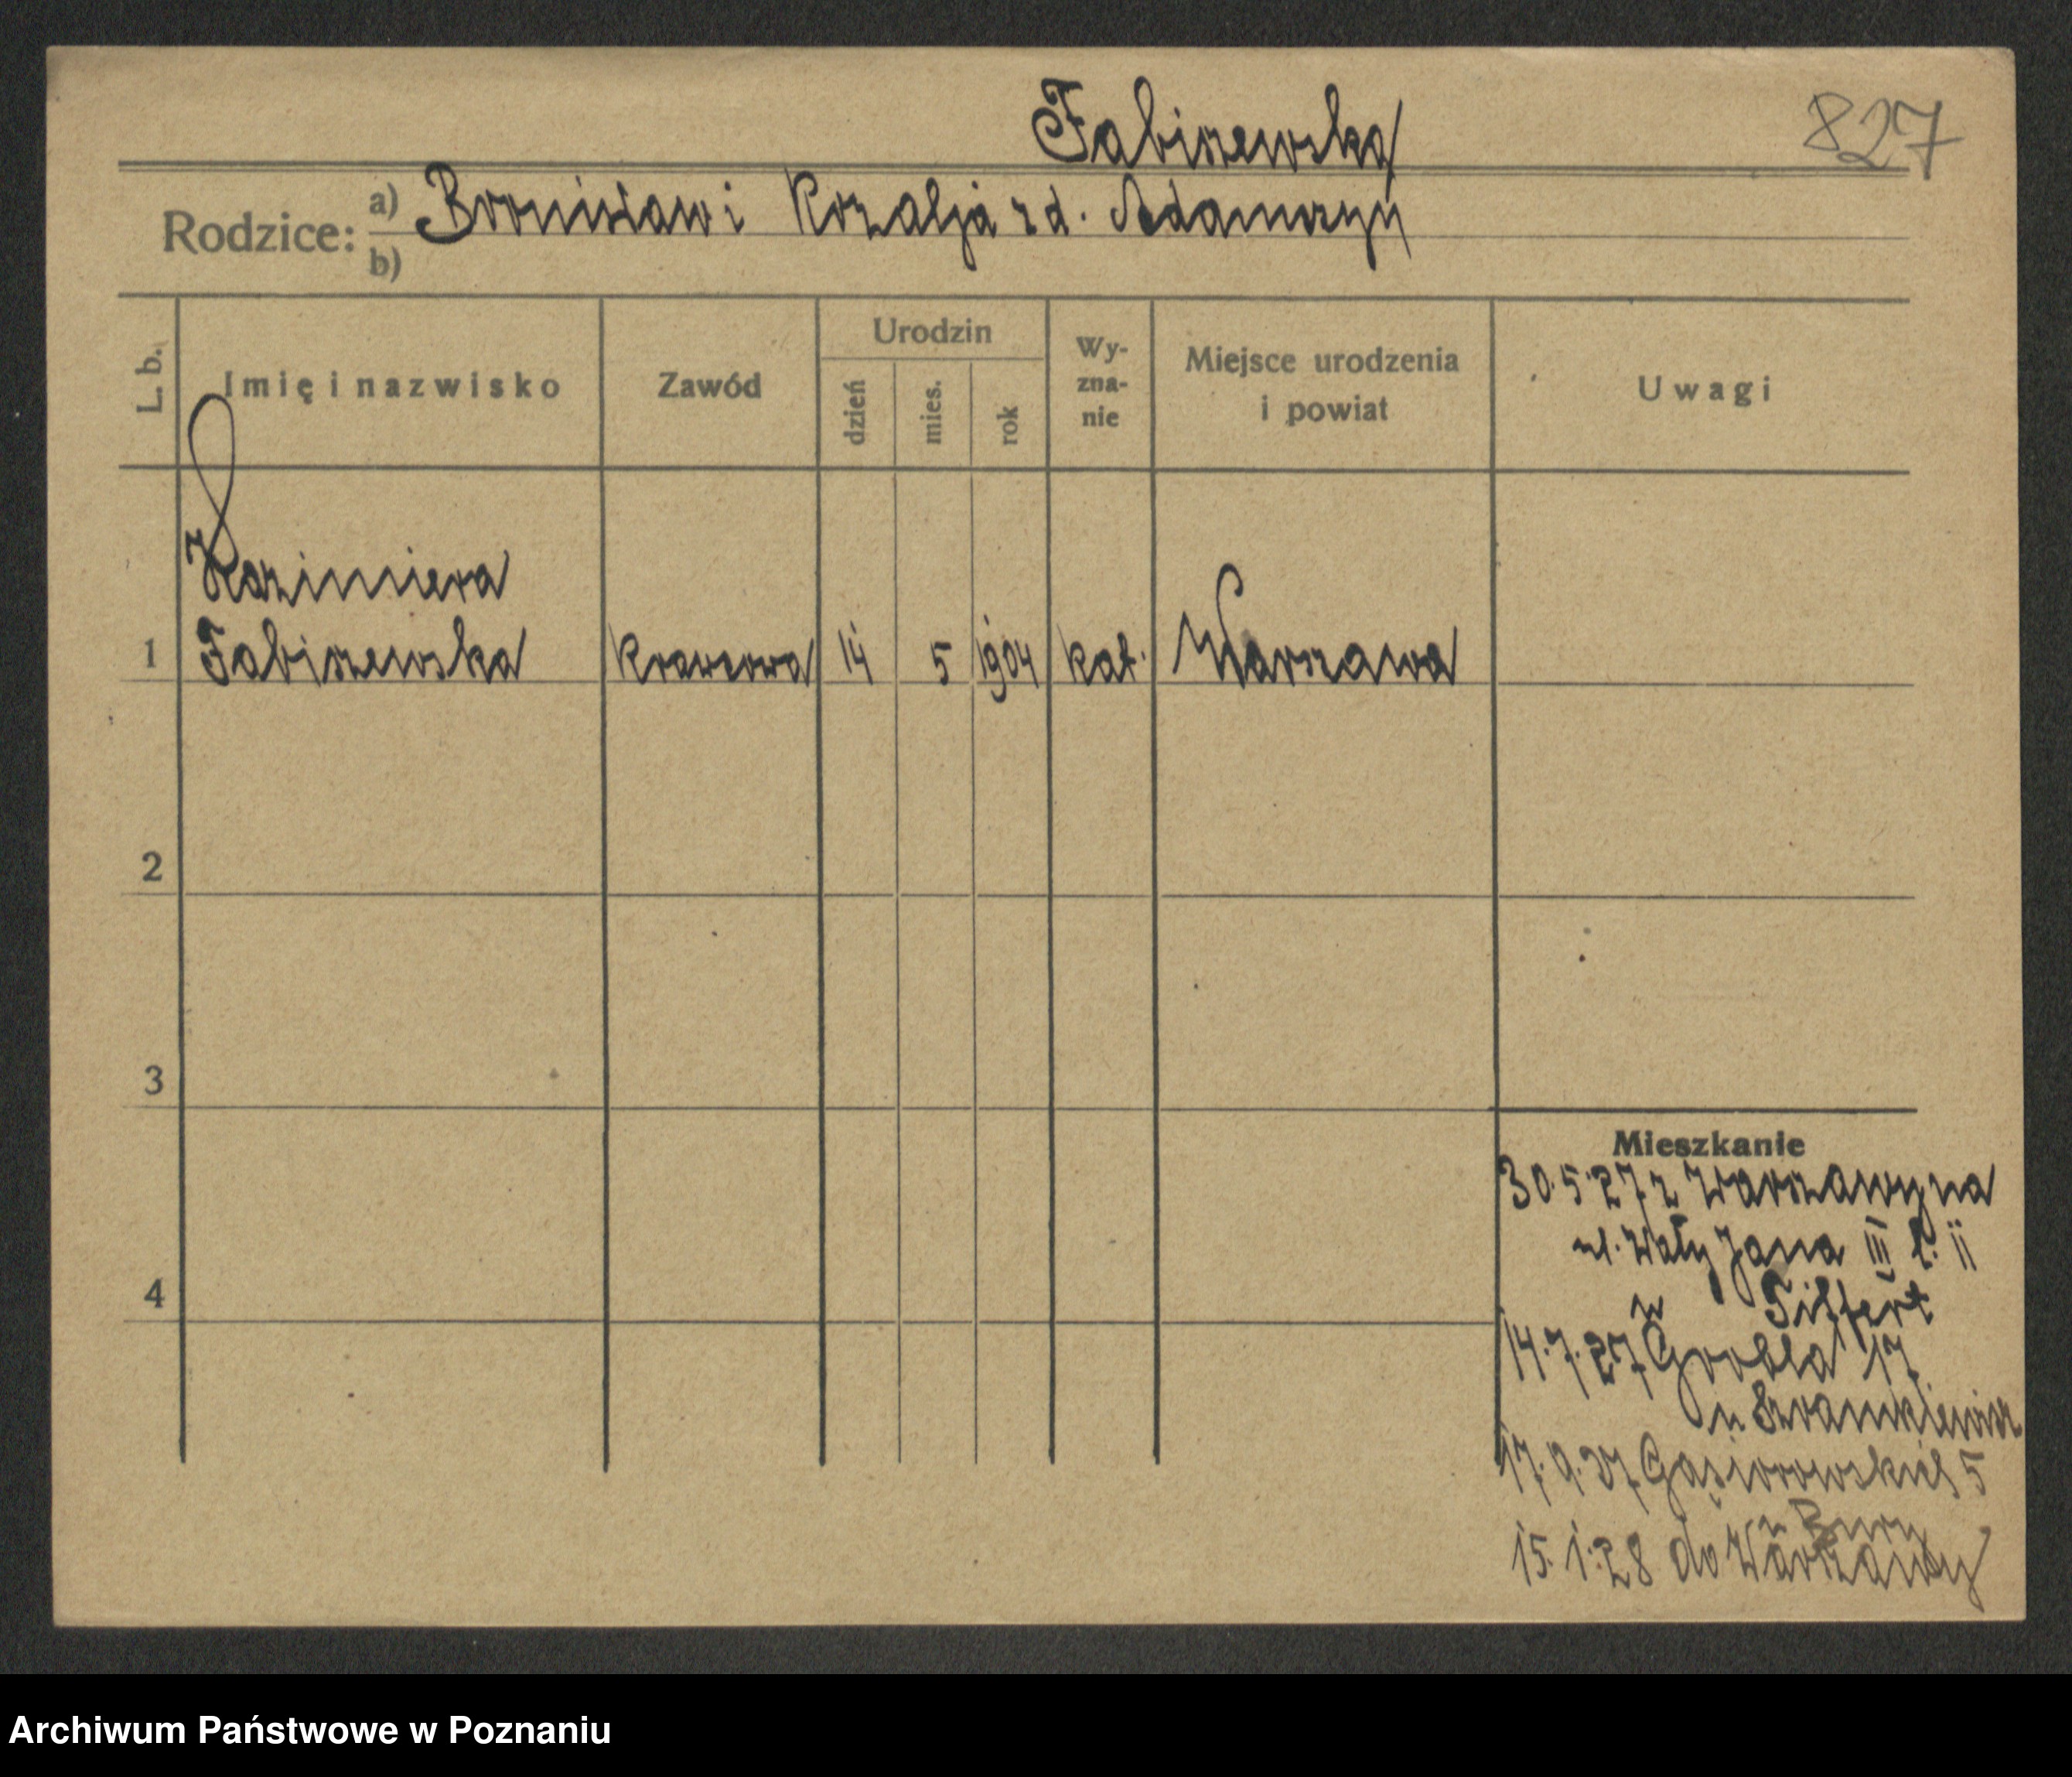 Fabiszewska
827
Rodzice: a) Bronisław i Rozalja zd. Adamczyn
b)
L. b.
Imię i nazwisko
Zawód
Urodzin
dzień
mies.
rok
Wy-
zna-
nie
Miejsce urodzenia
i powiat
Uwagi
Kazimiera
1 Fabiszewska krawcowa 14 5 1904 kat. Warszawa
2
3
4
Mieszkanie
30.5.27 z Warszawy na
ul. Wały Jana III l. 11
u
14.7.27 Grobla 17
u
17.9.27 Gąsiorowskich 5
u Bury
15.1.28 do Warszawy
Archiwum Państwowe w Poznaniu